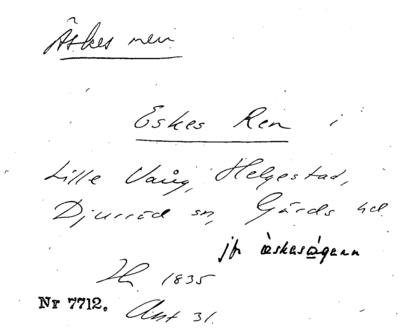 Äskes ren
Eskes Ren i
Lille Vång, Helgestad,
Djurröd sn, Gärds hd
jfr äskasågann
1835
Nr 7712. Akt 31.